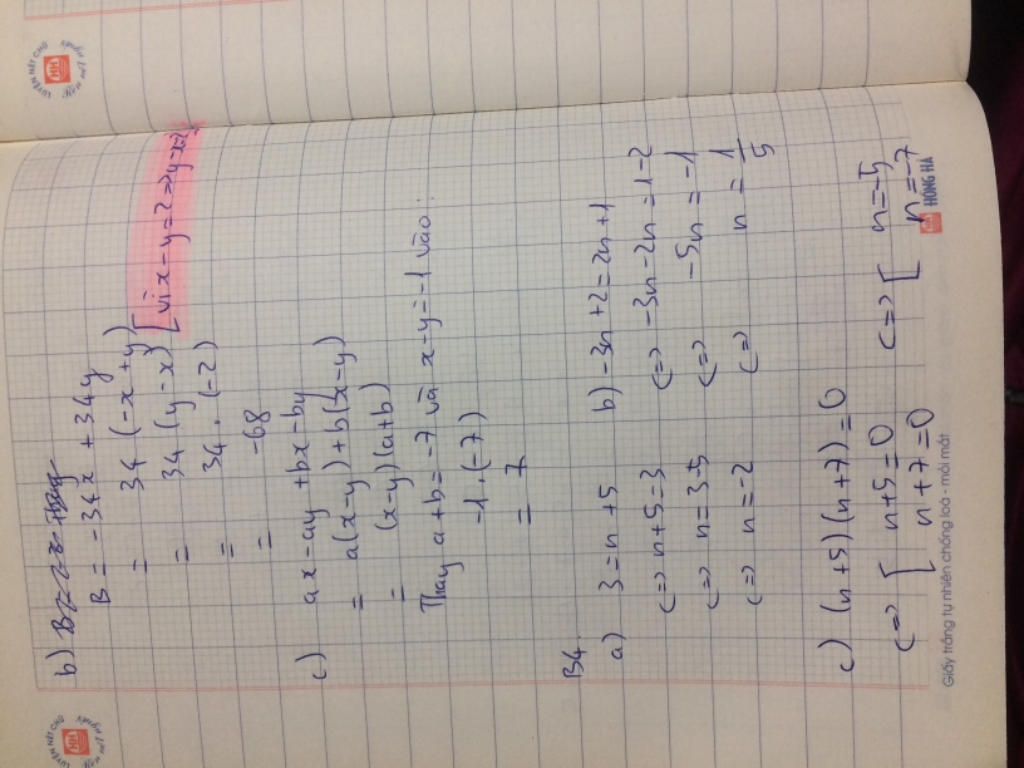 LUYỆN NÉT CHỮ
b)
B = -34x + 34y
= 34 (-x + y)
= 34 (y - x) [vì x-y=2=>y-x=-2]
= 34 . (-2)
= -68
c) ax - ay + bx - by
= a(x-y) + b(x-y)
= (x-y)(a+b)
Thay a+b=-7 và x-y=-1 vào:
-1.(-7)
= 7
B4.
a) 3 = n + 5 b) -3n + 2 = 2n + 1
<=> n+5=3 <=> -3n-2n=1-2
<=> n=3-5 <=> -5n = -1
<=> n=-2 <=> n = 1/5
c) (n+5)(n+7)=0
<=> [ n+5=0 <=> [ n=-5
n+7=0 n=-7
Giấy trắng tự nhiên chống loá - mỏi mắt
HH HỒNG HÀ
LUYỆN NÉT CHỮ